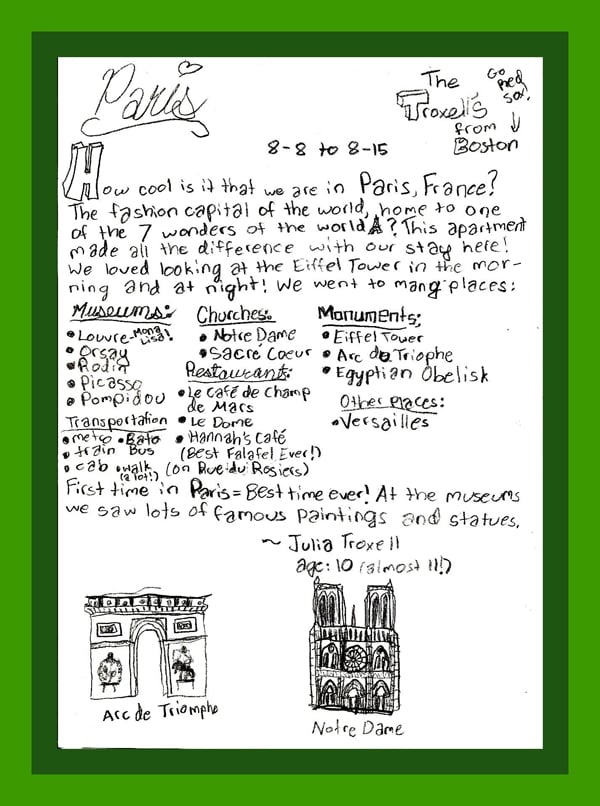 Paris
The
Troxell's
from
Boston
Go
Red
Sox!
8-8 to 8-15
How cool is it that we are in Paris, France?
The fashion capital of the world, home to one
of the 7 wonders of the world? This apartment
made all the difference with our stay here!
We loved looking at the Eiffel Tower in the mor-
ning and at night! We went to many places:
Museums:
• Louvre-Mona Lisa!
• Orsay
• Rodin
• Picasso
• Pompidou
Transportation
• metro • Bato
• train Bus
• cab • walk (a lot!)
Churches:
• Notre Dame
• Sacré Coeur
Restaurants:
• Le Café de Champ
de Mars
• Le Dome
• Hannah's Café
(Best Falafel Ever!)
(on Rue du Rosiers)
Monuments:
• Eiffel Tower
• Arc du Triophe
• Egyptian Obelisk
Other places:
• Versailles
First time in Paris = Best time ever! At the museums
we saw lots of famous paintings and statues.
~ Julia Troxell
age: 10 (almost 11!)
Arc de Triomphe
Notre Dame